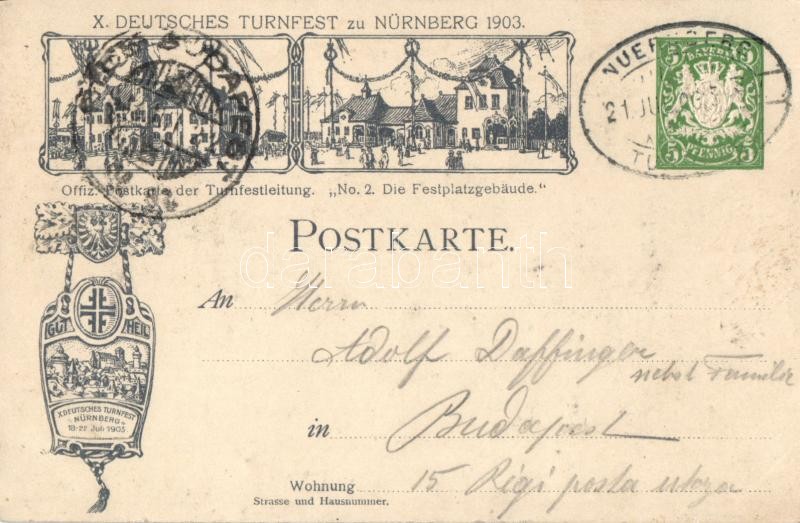 X. DEUTSCHES TURNFEST zu NÜRNBERG 1903.
BUDAPEST
NUERNBERG II
21. JU
BAYERN
5 5
5 PFENNIG 5
Offiz. Postkarte der Turnfestleitung. „No. 2. Die Festplatzgebäude."
POSTKARTE.
darabanth
GUT HEIL
X DEUTSCHES TURNFEST
NÜRNBERG
18-22 Juli 1903
An Herrn
Adolf Daffinger
nebst Familie
in Budapest
Wohnung 15 Régi posta utcza
Strasse und Hausnummer.